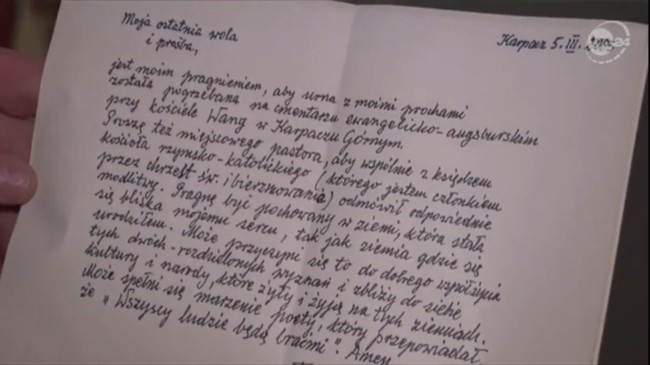 Moja ostatnia wola
i prośba,
Karpacz 5.III.
jest moim pragnieniem, aby urna z moimi prochami
została pogrzebana na cmentarzu ewangelicko-augsburskim
przy kościele Wang w Karpaczu Górnym.
Proszę też miejscowego pastora, aby wspólnie z księdzem
kościoła rzymsko-katolickiego (którego jestem członkiem
przez chrzest św. i bierzmowanie) odmówił odpowiednie
modlitwy. Pragnę być pochowany w ziemi, która stała
się bliska mojemu sercu, tak jak ziemia gdzie się
urodziłem. Może przyczyni się to do dobrego współżycia
tych dwóch-rozdzielonych wyznań i zbliży do siebie
kultury i narody, które żyły i żyją na tych ziemiach.
Może spełni się marzenie poety, który przepowiadał
że "Wszyscy ludzie będą braćmi". Amen